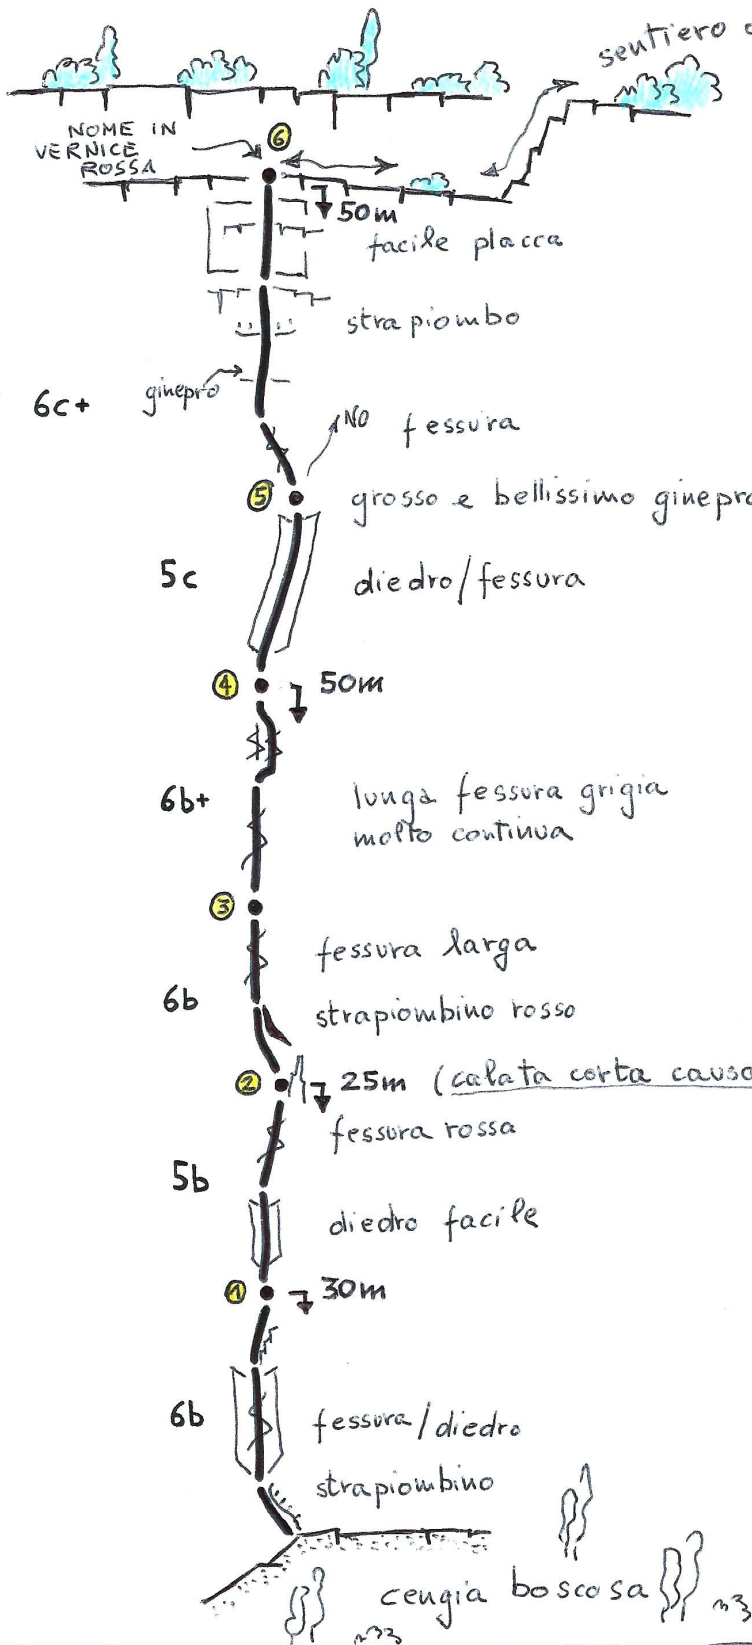 sentiero
NOME IN
VERNICE
ROSSA
6
50m
facile placca
strapiombo
ginepro
6c+
NO
fessura
5
grosso e bellissimo ginepro
5c
diedro/fessura
4
50m
6b+
lunga fessura grigia
molto continua
3
fessura larga
6b
strapiombino rosso
2
25m (calata corta causa
fessura rossa
5b
diedro facile
1
30m
6b
fessura/diedro
strapiombino
cengia boscosa